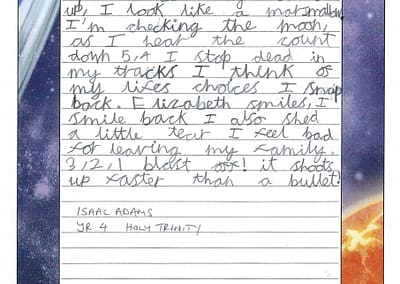 up, I look like a marsmallow
I'm checking the moon,
as I hear the count
down 5,4 I stop dead in
my tracks I think of
my lifes choices I snap
back. Elizabeth smiles, I
smile back I also shed
a little tear I feel bad
for leaving my family.
3,2,1 blast off! it shoots
up faster than a bullet!
ISAAC ADAMS
YR 4 HOLY TRINITY